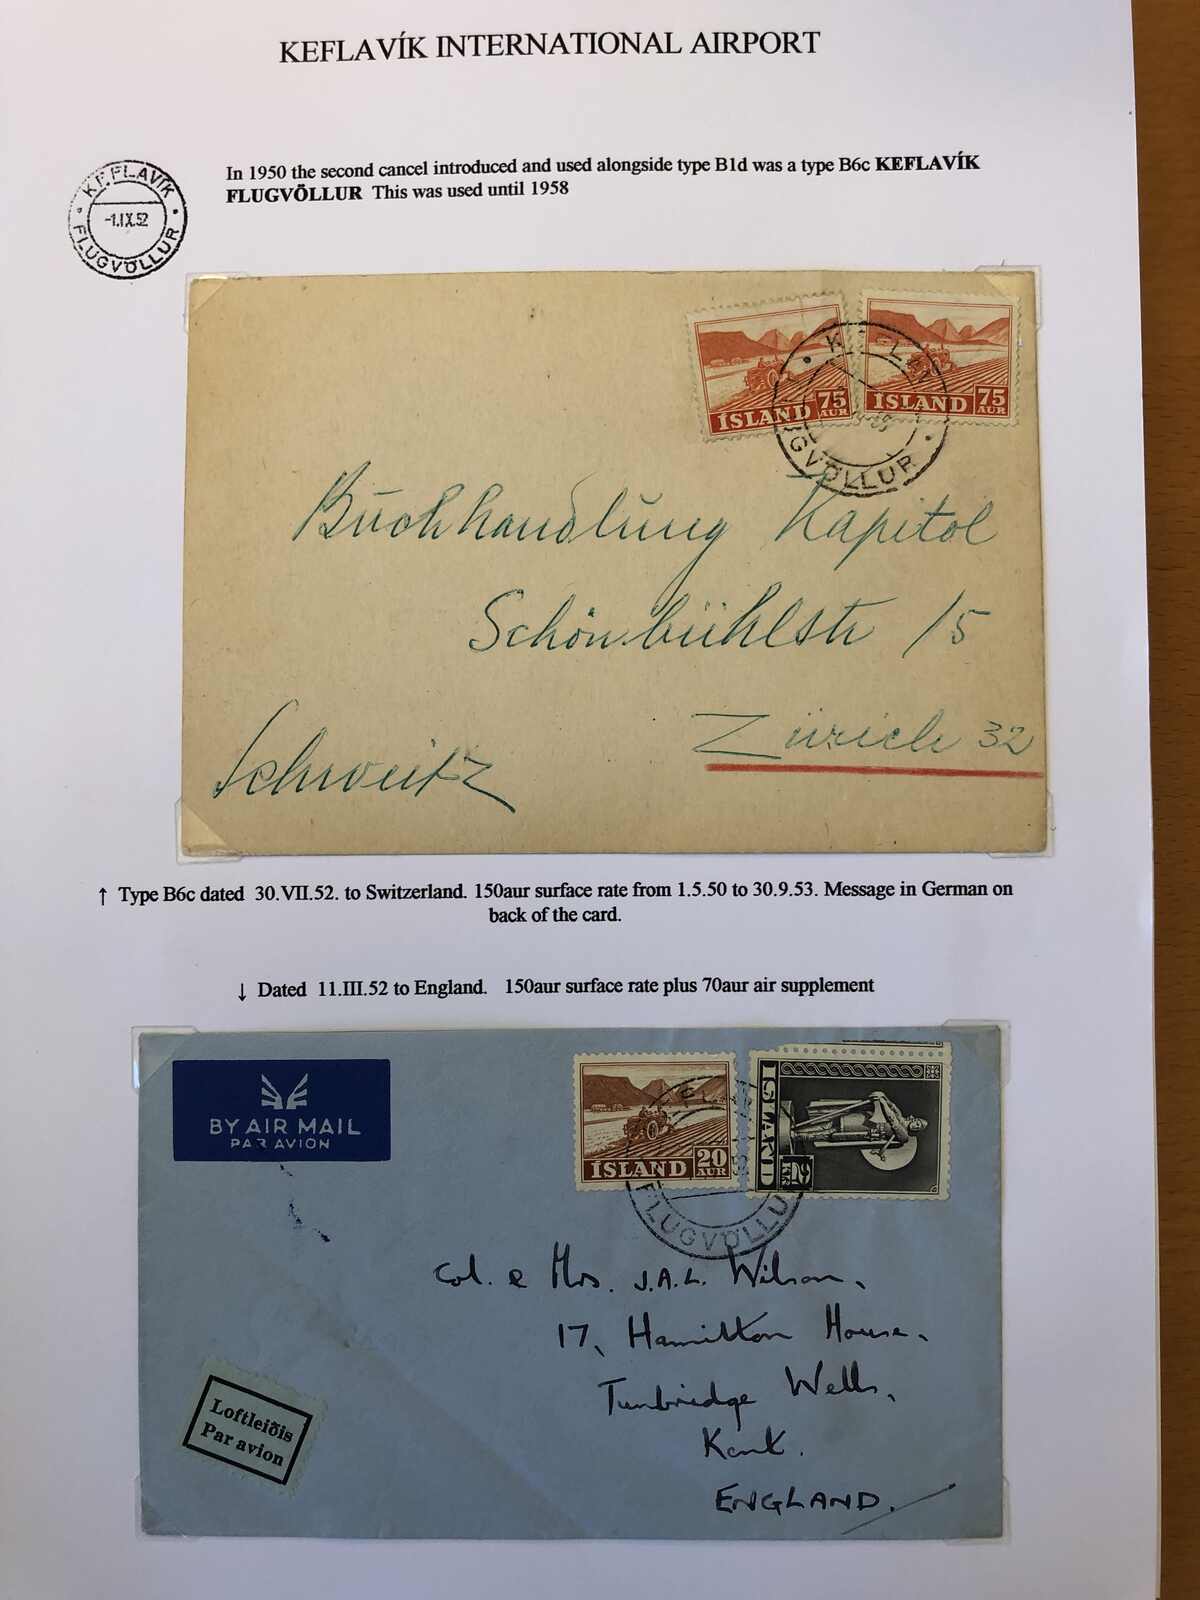 KEFLAVÍK INTERNATIONAL AIRPORT
KEFLAVÍK
-1.IX.52
FLUGVÖLLUR
In 1950 the second cancel introduced and used alongside type B1d was a type B6c KEFLAVÍK
FLUGVÖLLUR This was used until 1958
ÍSLAND 75 AUR
ÍSLAND 75 AUR
Buchhandlung Kapitol
Schönbühlstr 15
Zürich 32
Schweitz
↑ Type B6c dated 30.VII.52. to Switzerland. 150aur surface rate from 1.5.50 to 30.9.53. Message in German on
back of the card.
↓ Dated 11.III.52 to England. 150aur surface rate plus 70aur air supplement
BY AIR MAIL
PAR AVION
ÍSLAND 20 AUR
ÍSLAND 2 KR
FLUGVÖLLU
Col. & Mrs. J.A.L. Wilson,
17, Hamilton House,
Tunbridge Wells,
Kent.
ENGLAND.
Loftleiðis
Par avion